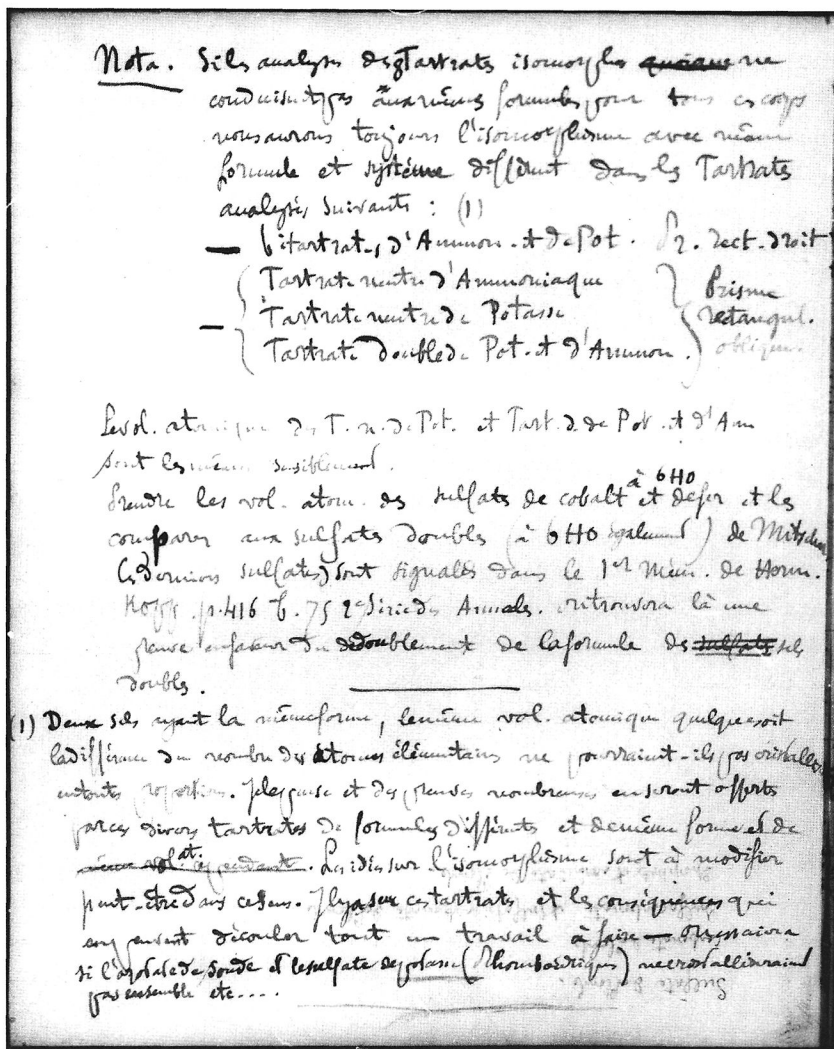 Nota. Si les analyses des 8 Tartrates isomorphes ne
conduisent pas aux mêmes formules pour tous ces corps
nous aurons toujours l'isomorphisme avec même
formule et système différent dans les Tartrates
analysés suivants : (1)
— bitartrates d'Ammon. et de Pot. Pr. rect. droit
Tartrate neutre d'Ammoniaque
— Tartrate neutre de Potasse
Tartrate double de Pot. et d'Ammon.
Prisme
rectangul.
oblique.
Le vol. atomique des T. n. de Pot. et Tart. d. de Pot. et d'Am
sont les mêmes sensiblement.
Prendre les vol. atom. des sulfates de cobalt à 6HO et de fer et les
comparer aux sulfates doubles (à 6HO également) de Mitscher
(Ces derniers sulfates) sont signalés dans le 1er Mém. de Herm.
Kopp. p. 416 t. 75 2e Série des Annales. on trouvera là une
preuve en faveur du dédoublement de la formule des sulfates sels
doubles.
(1) Deux sels ayant la même forme, le même vol. atomique quelque soit
la différence du nombre des atomes élémentaires ne pourraient-ils pas cristalliser
en toutes proportions. Je le pense et des preuves nombreuses en seront offerts
par ces divers tartrates de formules différents et de même forme et de
même vol. at. cependant. Les idées sur l'isomorphisme sont à modifier
peut-être dans ce sens. Il y a sur ces tartrates et les conséquences qui
en peuvent découler tout un travail à faire — On essaiera
si l'azotate de soude et le sulfate de potasse (Rhomboédriques) ne cristalliseraient
pas ensemble etc....